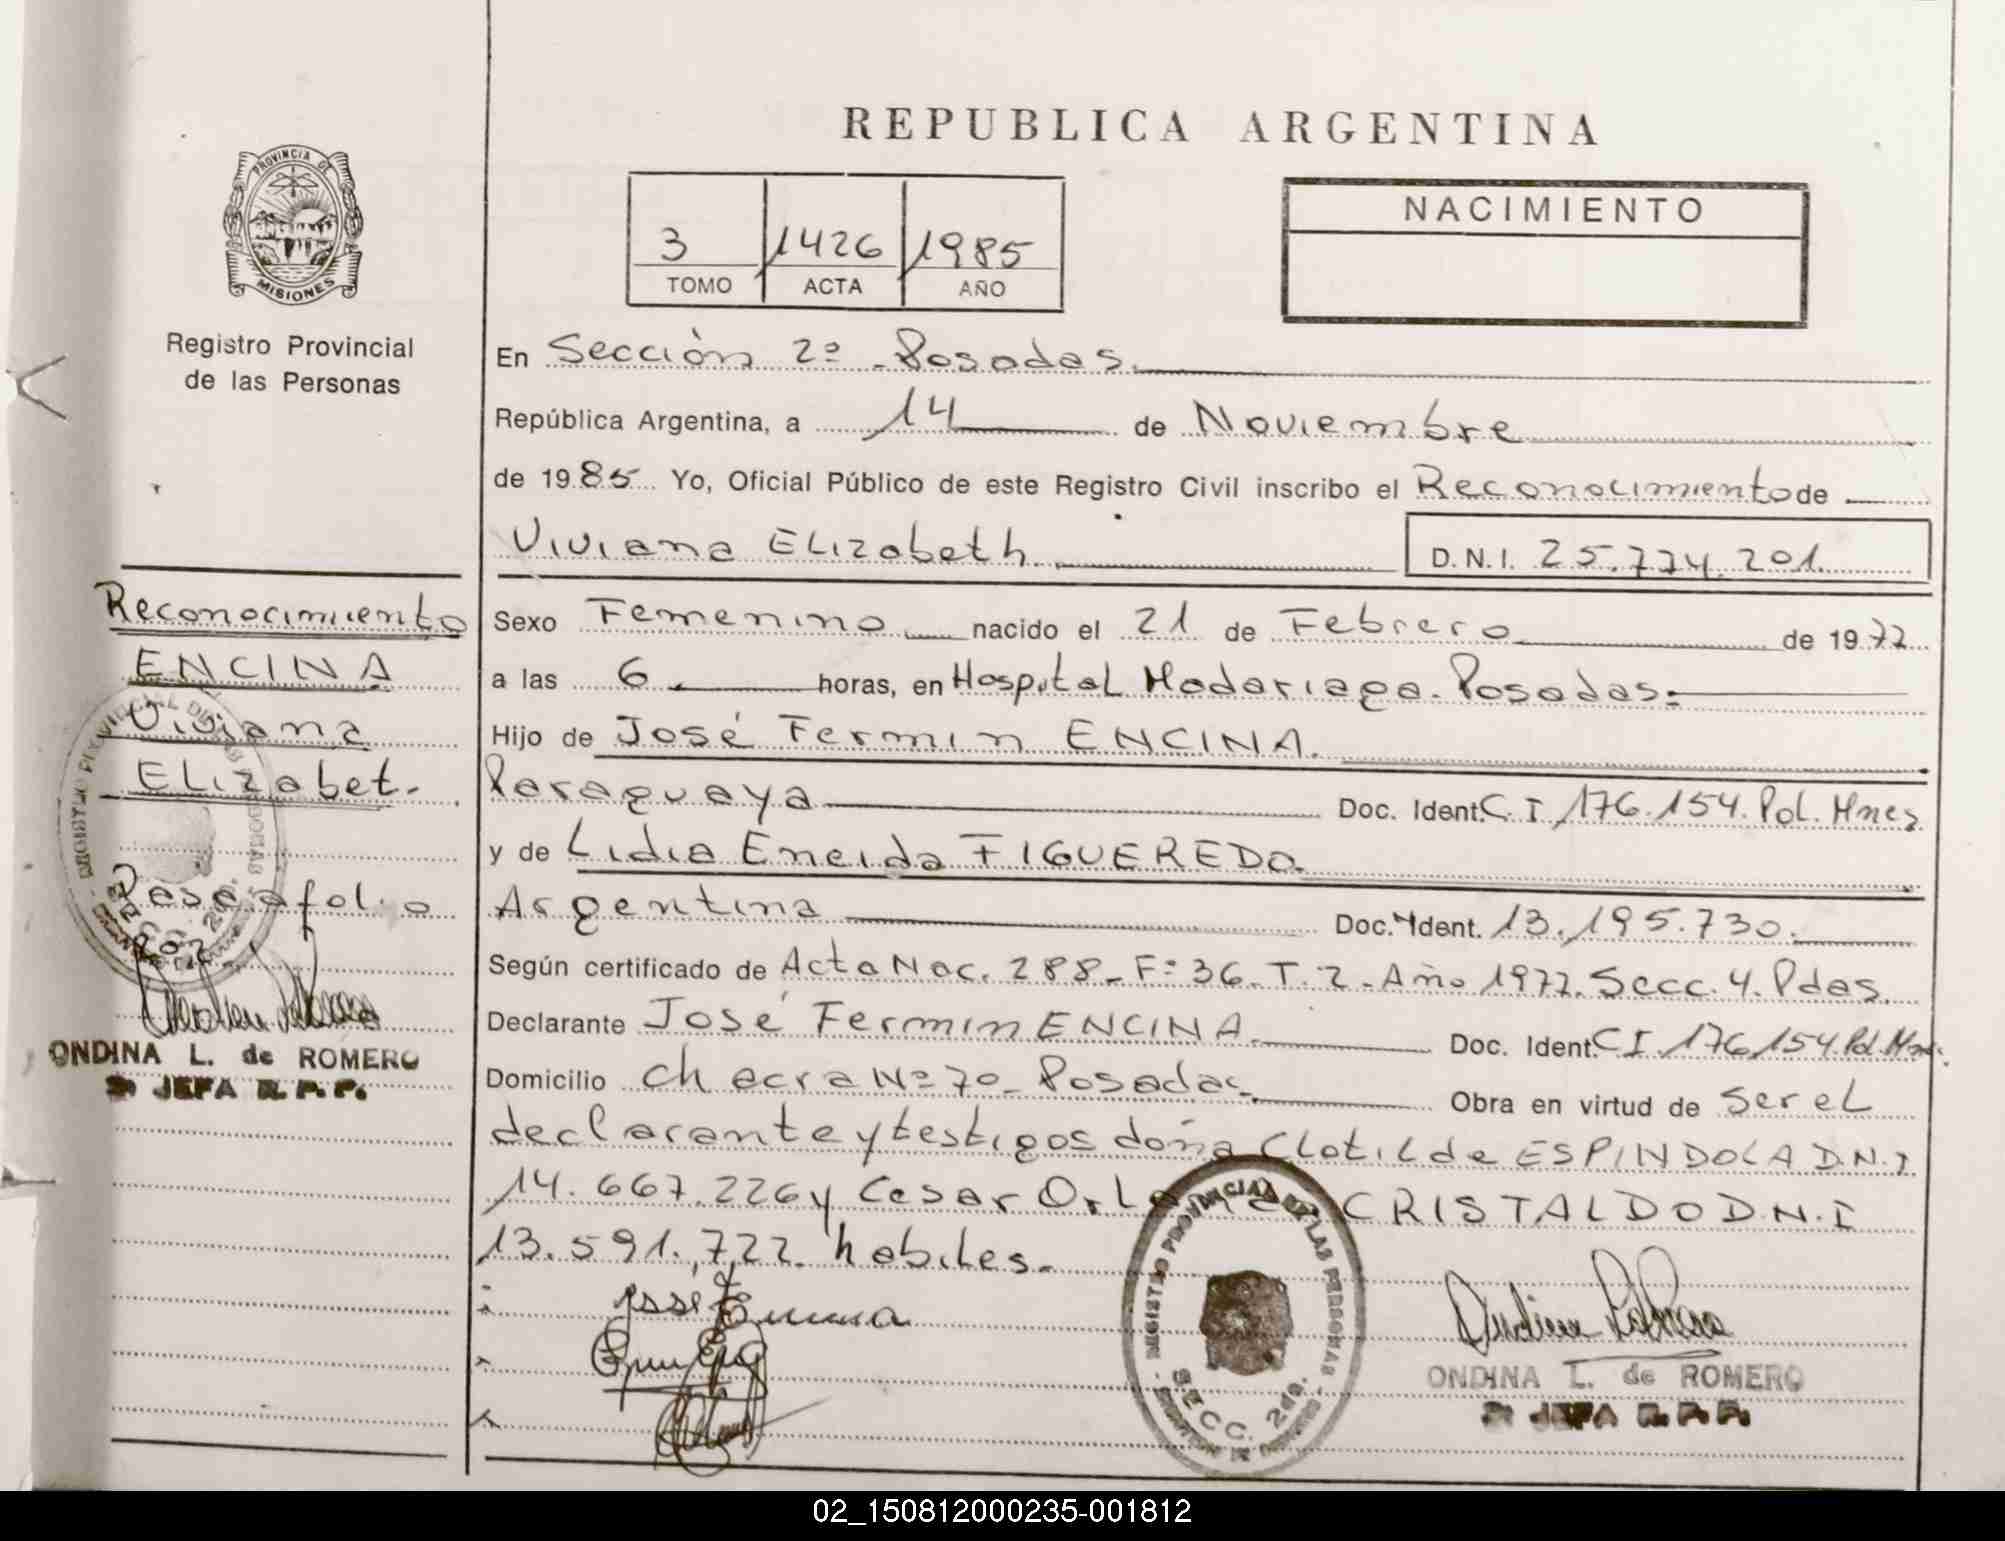 REPUBLICA ARGENTINA
PROVINCIA DE
MISIONES
Registro Provincial
de las Personas
3 1426 1985
TOMO ACTA AÑO
NACIMIENTO
En Sección 2º - Posadas.
República Argentina, a 14 de Noviembre
de 1985 Yo, Oficial Público de este Registro Civil inscribo el Reconocimiento de
Viviana ELizabeth.
D.N.I. 25.774.201.
Sexo Femenino nacido el 21 de Febrero de 1977
a las 6 horas, en Hospital Madariaga. Posadas.-
Hijo de José Fermin ENCINA.
Paraguaya Doc. Ident. C.I 176.154. Pol. Mnes
y de Lidia Eneida FIGUEREDO.
Argentina Doc. Ident. 13.195.730.
Según certificado de Acta Nac. 288- Fº 36. T. 2- Año 1977. Secc. 4. Pdas.
Declarante José Fermin ENCINA. Doc. Ident. C I 176154. Pol. Mnes.
Domicilio Chacra Nº 70- Posadas- Obra en virtud de ser eL
declarante y testigos doña Clotilde ESPINDOLA D.N.I
14.667.226 y Cesar CRISTALDO D.N.I
13.591.722. habiles.-
José F Encina
REGISTRO PROVINCIAL DE LAS PERSONAS
SECC. 2da.
ONDINA L. de ROMERO
JEFA R.P.P.
Reconocimiento
ENCINA
Viviana
ELizabet.
Pase a folio
202
ONDINA L. de ROMERO
JEFA R.P.P.
02_150812000235-001812